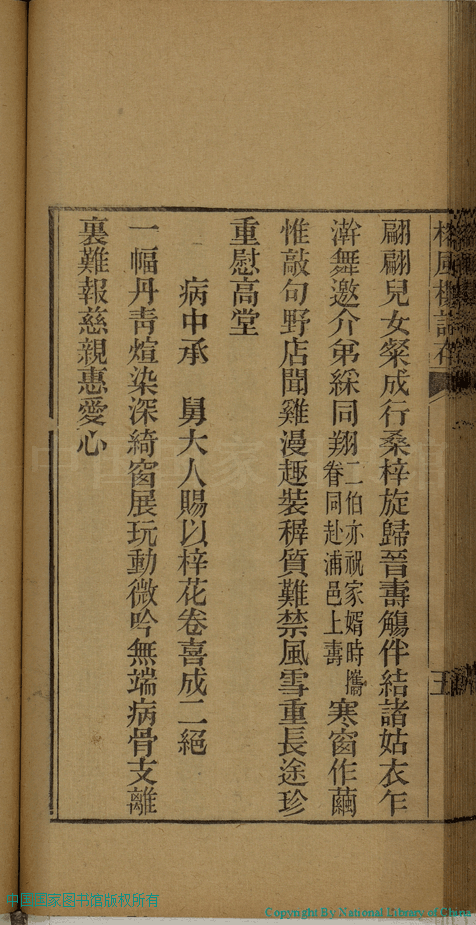 翩翩兒女粲成行桑梓旋歸晉壽觴伴結諸姑衣乍
澣舞邀介弟綵同翔二伯亦祝家婿時攜眷同赴浦邑上壽寒窗作繭
惟敲句野店聞雞漫趣裝穉質難禁風雪重長途珍
重慰高堂
病中承 舅大人賜以梓花卷喜成二絕
一幅丹靑煊染深綺窗展玩動微吟無端病骨支離
裏難報慈親惠愛心
五
中国国家图书馆版权所有
Copyright By National Library of China